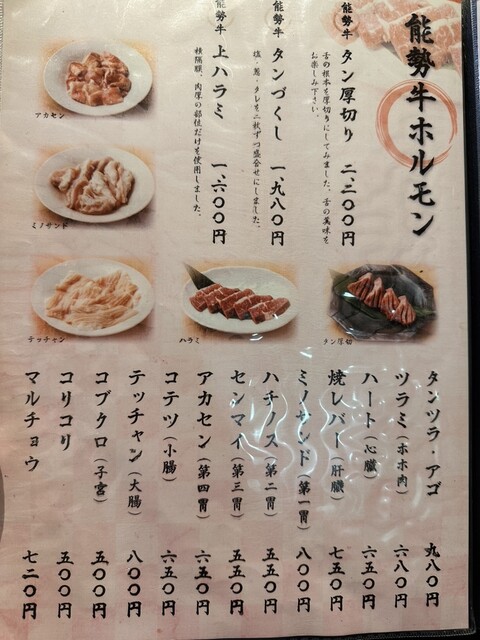 能勢牛ホルモン
能勢牛 タン厚切り 二、二〇〇円
舌の根本を厚切りにしてみました。舌の美味を
お楽しみ下さい。
能勢牛 タンづくし 一、九八〇円
塩・葱・タレを二枚ずつ盛合せにしました。
能勢牛 上ハラミ 一、六〇〇円
横隔膜、肉厚の部位だけを使用しました。
アカセン
ミノサンド
テッチャン
ハラミ
タン厚切
タンツラ・アゴ 九八〇円
ツラミ(ホホ肉) 六八〇円
ハート(心臓) 六五〇円
焼レバー(肝臓) 七五〇円
ミノサンド(第一胃) 八〇〇円
ハチノス(第二胃) 五五〇円
センマイ(第三胃) 五五〇円
アカセン(第四胃) 六五〇円
コテツ(小腸) 六五〇円
テッチャン(大腸) 八〇〇円
コブクロ(子宮) 五〇〇円
コリコリ 五〇〇円
マルチョウ 七二〇円